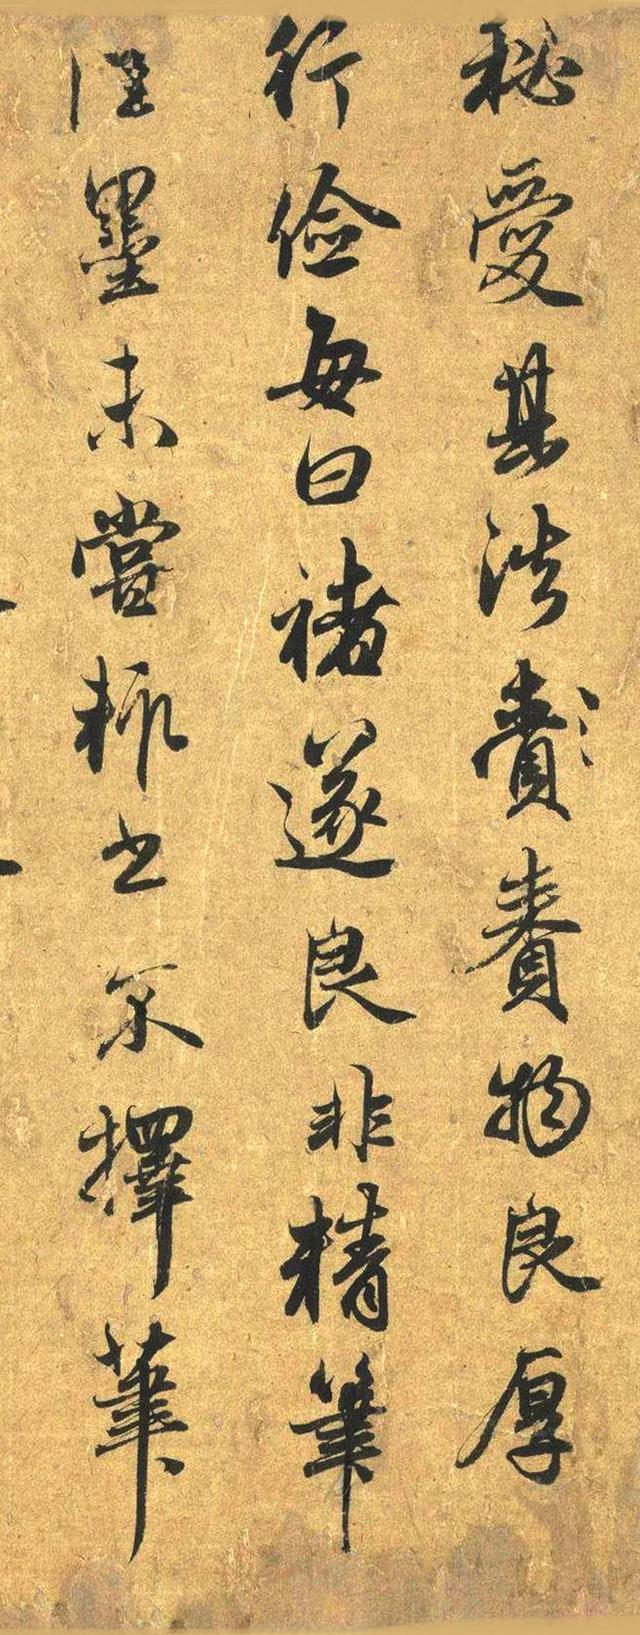 秘愛其法賚賚物良厚
行儉每曰褚遂良非精筆
佳墨未嘗輙書不擇筆